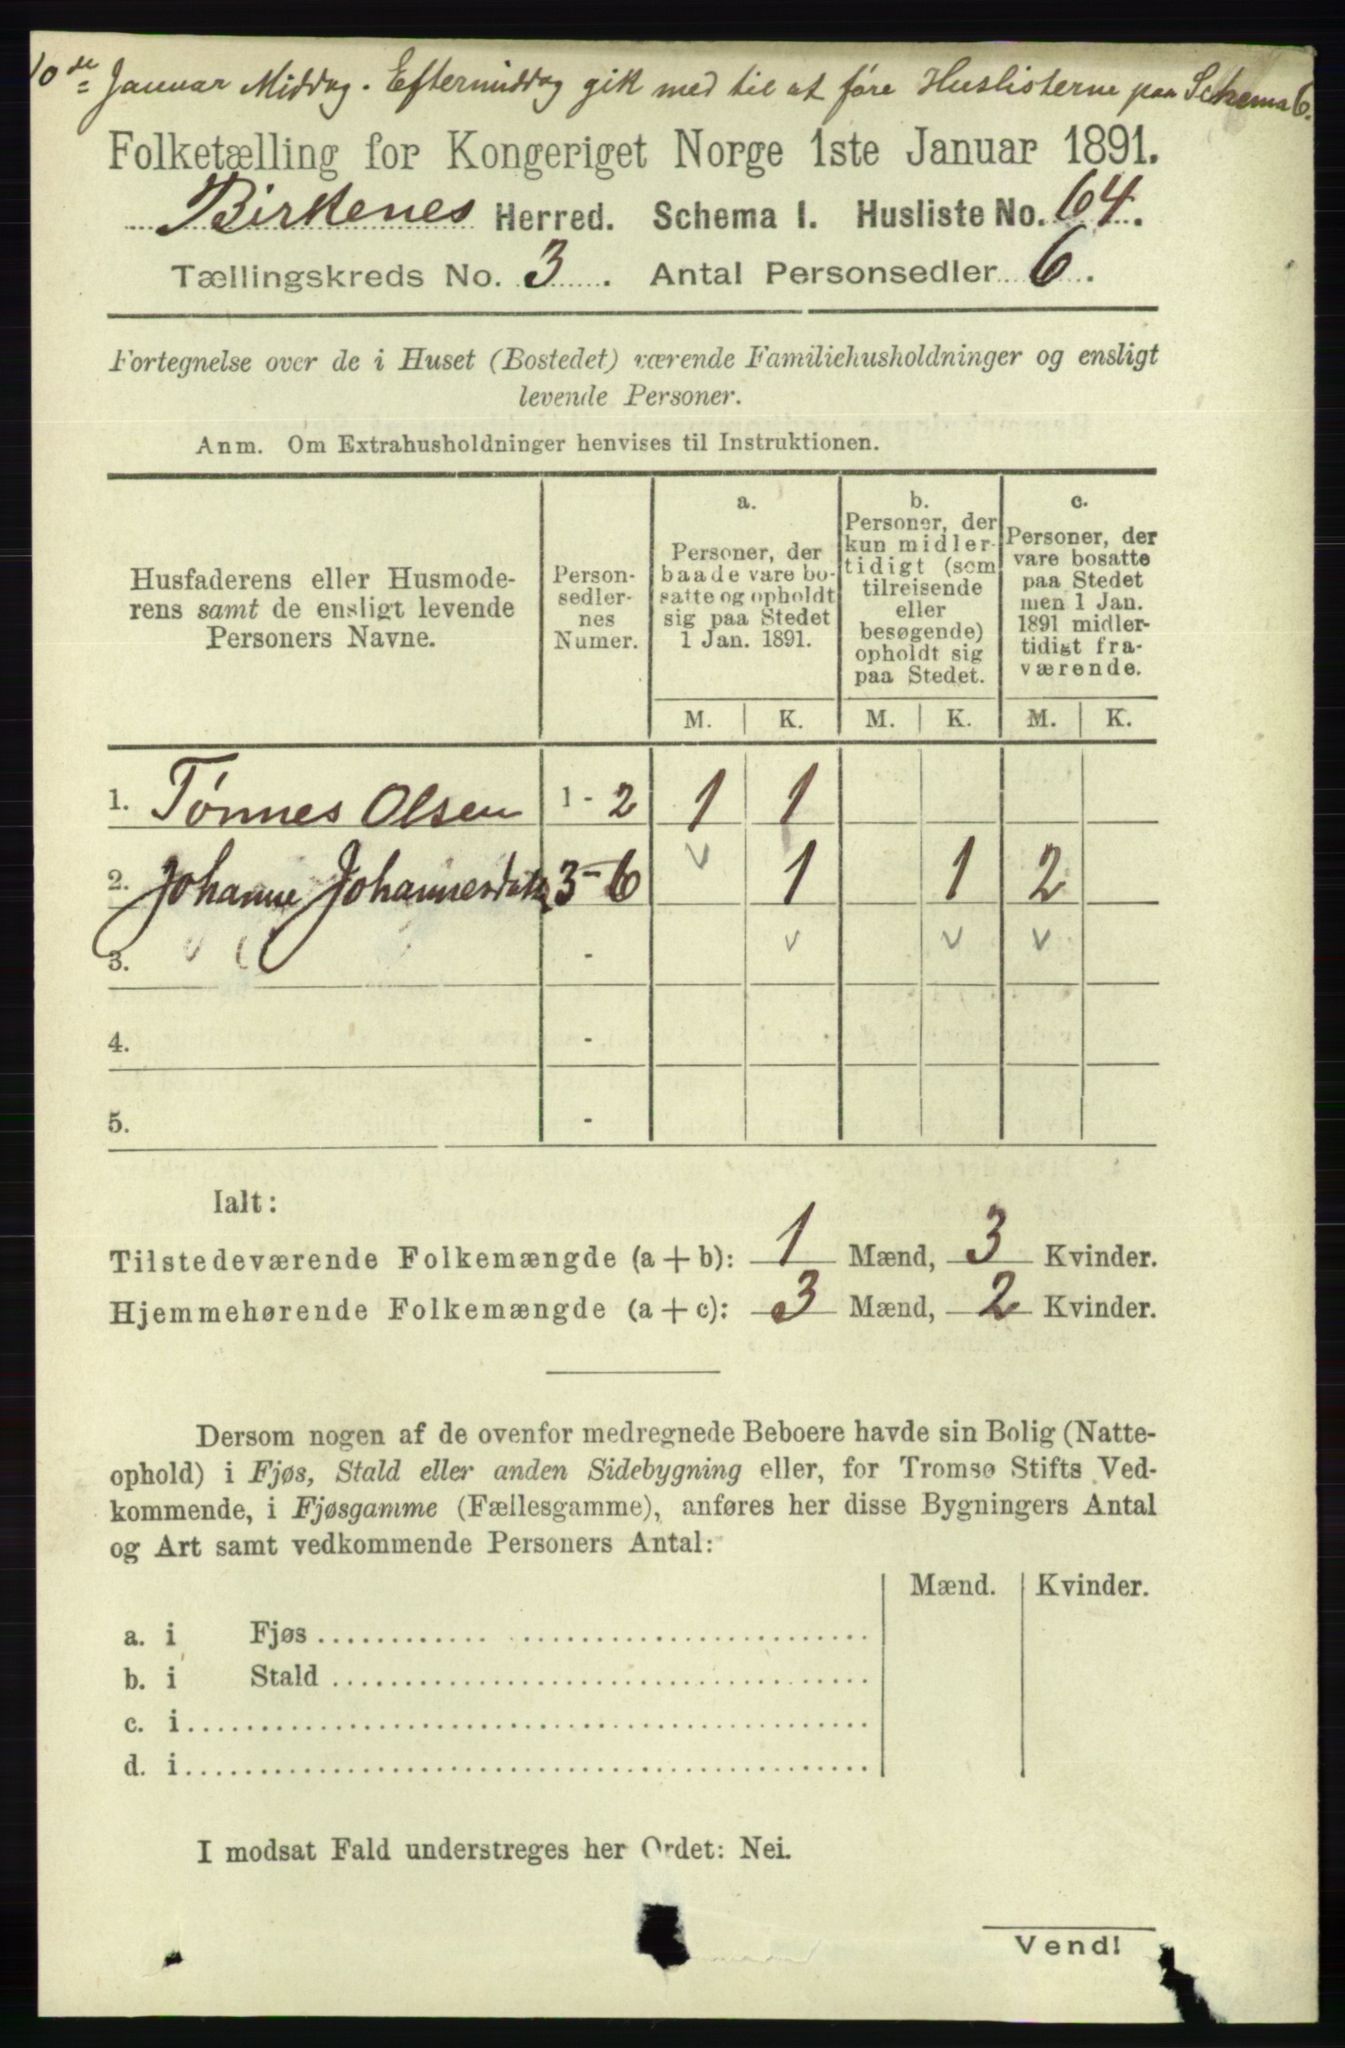 10de Januar Middag. Eftermiddag gik med til at føre Huslisterne paa Schema 6.
Folketælling for Kongeriget Norge 1ste Januar 1891.
Birkenes Herred. Schema I. Husliste No. 64.
Tællingskreds No. 3. Antal Personsedler 6.
Fortegnelse over de i Huset (Bostedet) værende Familiehusholdninger og ensligt
levende Personer.
Anm. Om Extrahusholdninger henvises til Instruktionen.
Husfaderens eller Husmode-
rens samt de ensligt levende
Personers Navne.
Person-
sedler-
nes
Numer.
a.
Personer, der
baade vare bo-
satte og opholdt
sig paa Stedet
1 Jan. 1891.
b.
Personer, der
kun midler-
tidigt (som
tilreisende
eller
besøgende)
opholdt sig
paa Stedet.
c.
Personer, der
vare bosatte
paa Stedet
men 1 Jan.
1891 midler-
tidigt fra-
værende.
M. K. M. K. M. K.
1. Tønnes Olsen 1 - 2 1 1
2. Johanne Johannesdatr 3 - 6 v 1 1 2
3. - v v v
4. -
5. -
Ialt:
Tilstedeværende Folkemængde (a + b): 1 Mænd, 3 Kvinder.
Hjemmehørende Folkemængde (a + c): 3 Mænd, 2 Kvinder.
Dersom nogen af de ovenfor medregnede Beboere havde sin Bolig (Natte-
ophold) i Fjøs, Stald eller anden Sidebygning eller, for Tromsø Stifts Ved-
kommende, i Fjøsgamme (Fællesgamme), anføres her disse Bygningers Antal
og Art samt vedkommende Personers Antal:
Mænd. Kvinder.
a. i Fjøs
b. i Stald
c. i
d. i
I modsat Fald understreges her Ordet: Nei.
Vend!